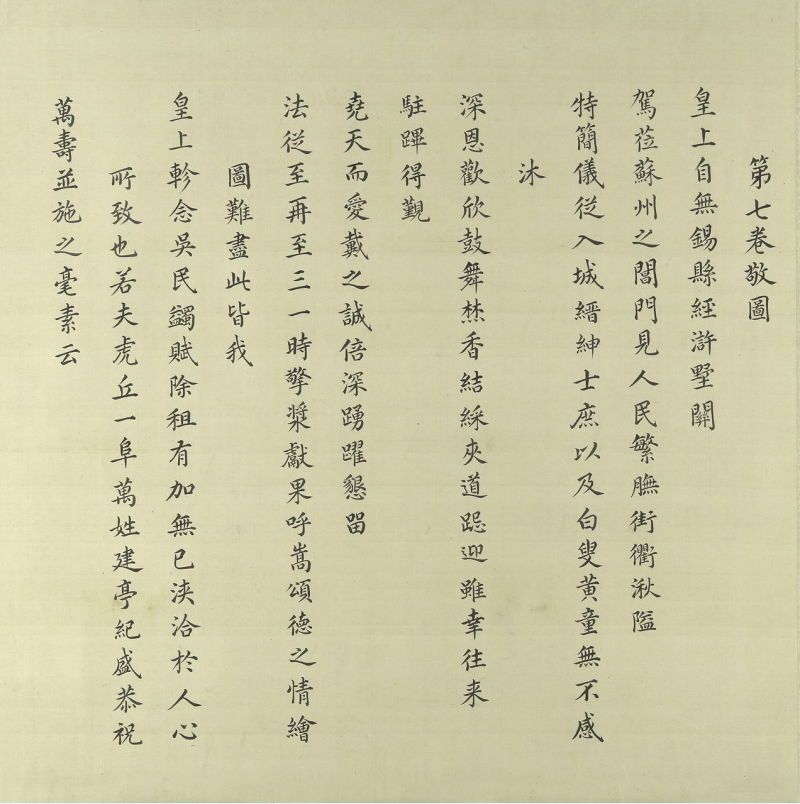 第七卷敬圖
皇上自無錫縣經滸墅關
駕莅蘇州之閶門見人民繁膴街衢湫隘
特簡儀從入城縉紳士庶以及白叟黃童無不感
沐
深恩歡欣鼓舞焚香結綵夾道跽迎雖幸往来
駐蹕得覲
堯天而愛戴之誠倍深踴躍懇留
法從至再至三一時擎漿獻果呼嵩頌德之情繪
圖難盡此皆我
皇上軫念吳民蠲賦除租有加無已浹洽於人心
所致也若夫虎丘一阜萬姓建亭紀盛恭祝
萬壽並施之毫素云